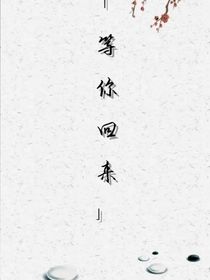 「等你回来」